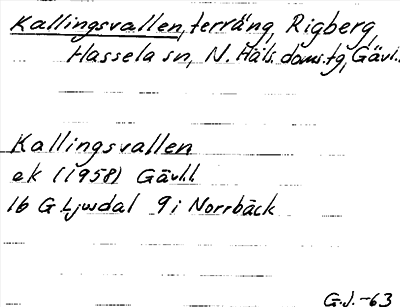 Kallingsvallen, terräng, Rigberg,
Hassela sn, N. Häls. doms.tg, Gävl.
Kallingsvallen
ek (1958) Gävl.l.
16 G Ljusdal 9i Norrbäck
G.J. -63